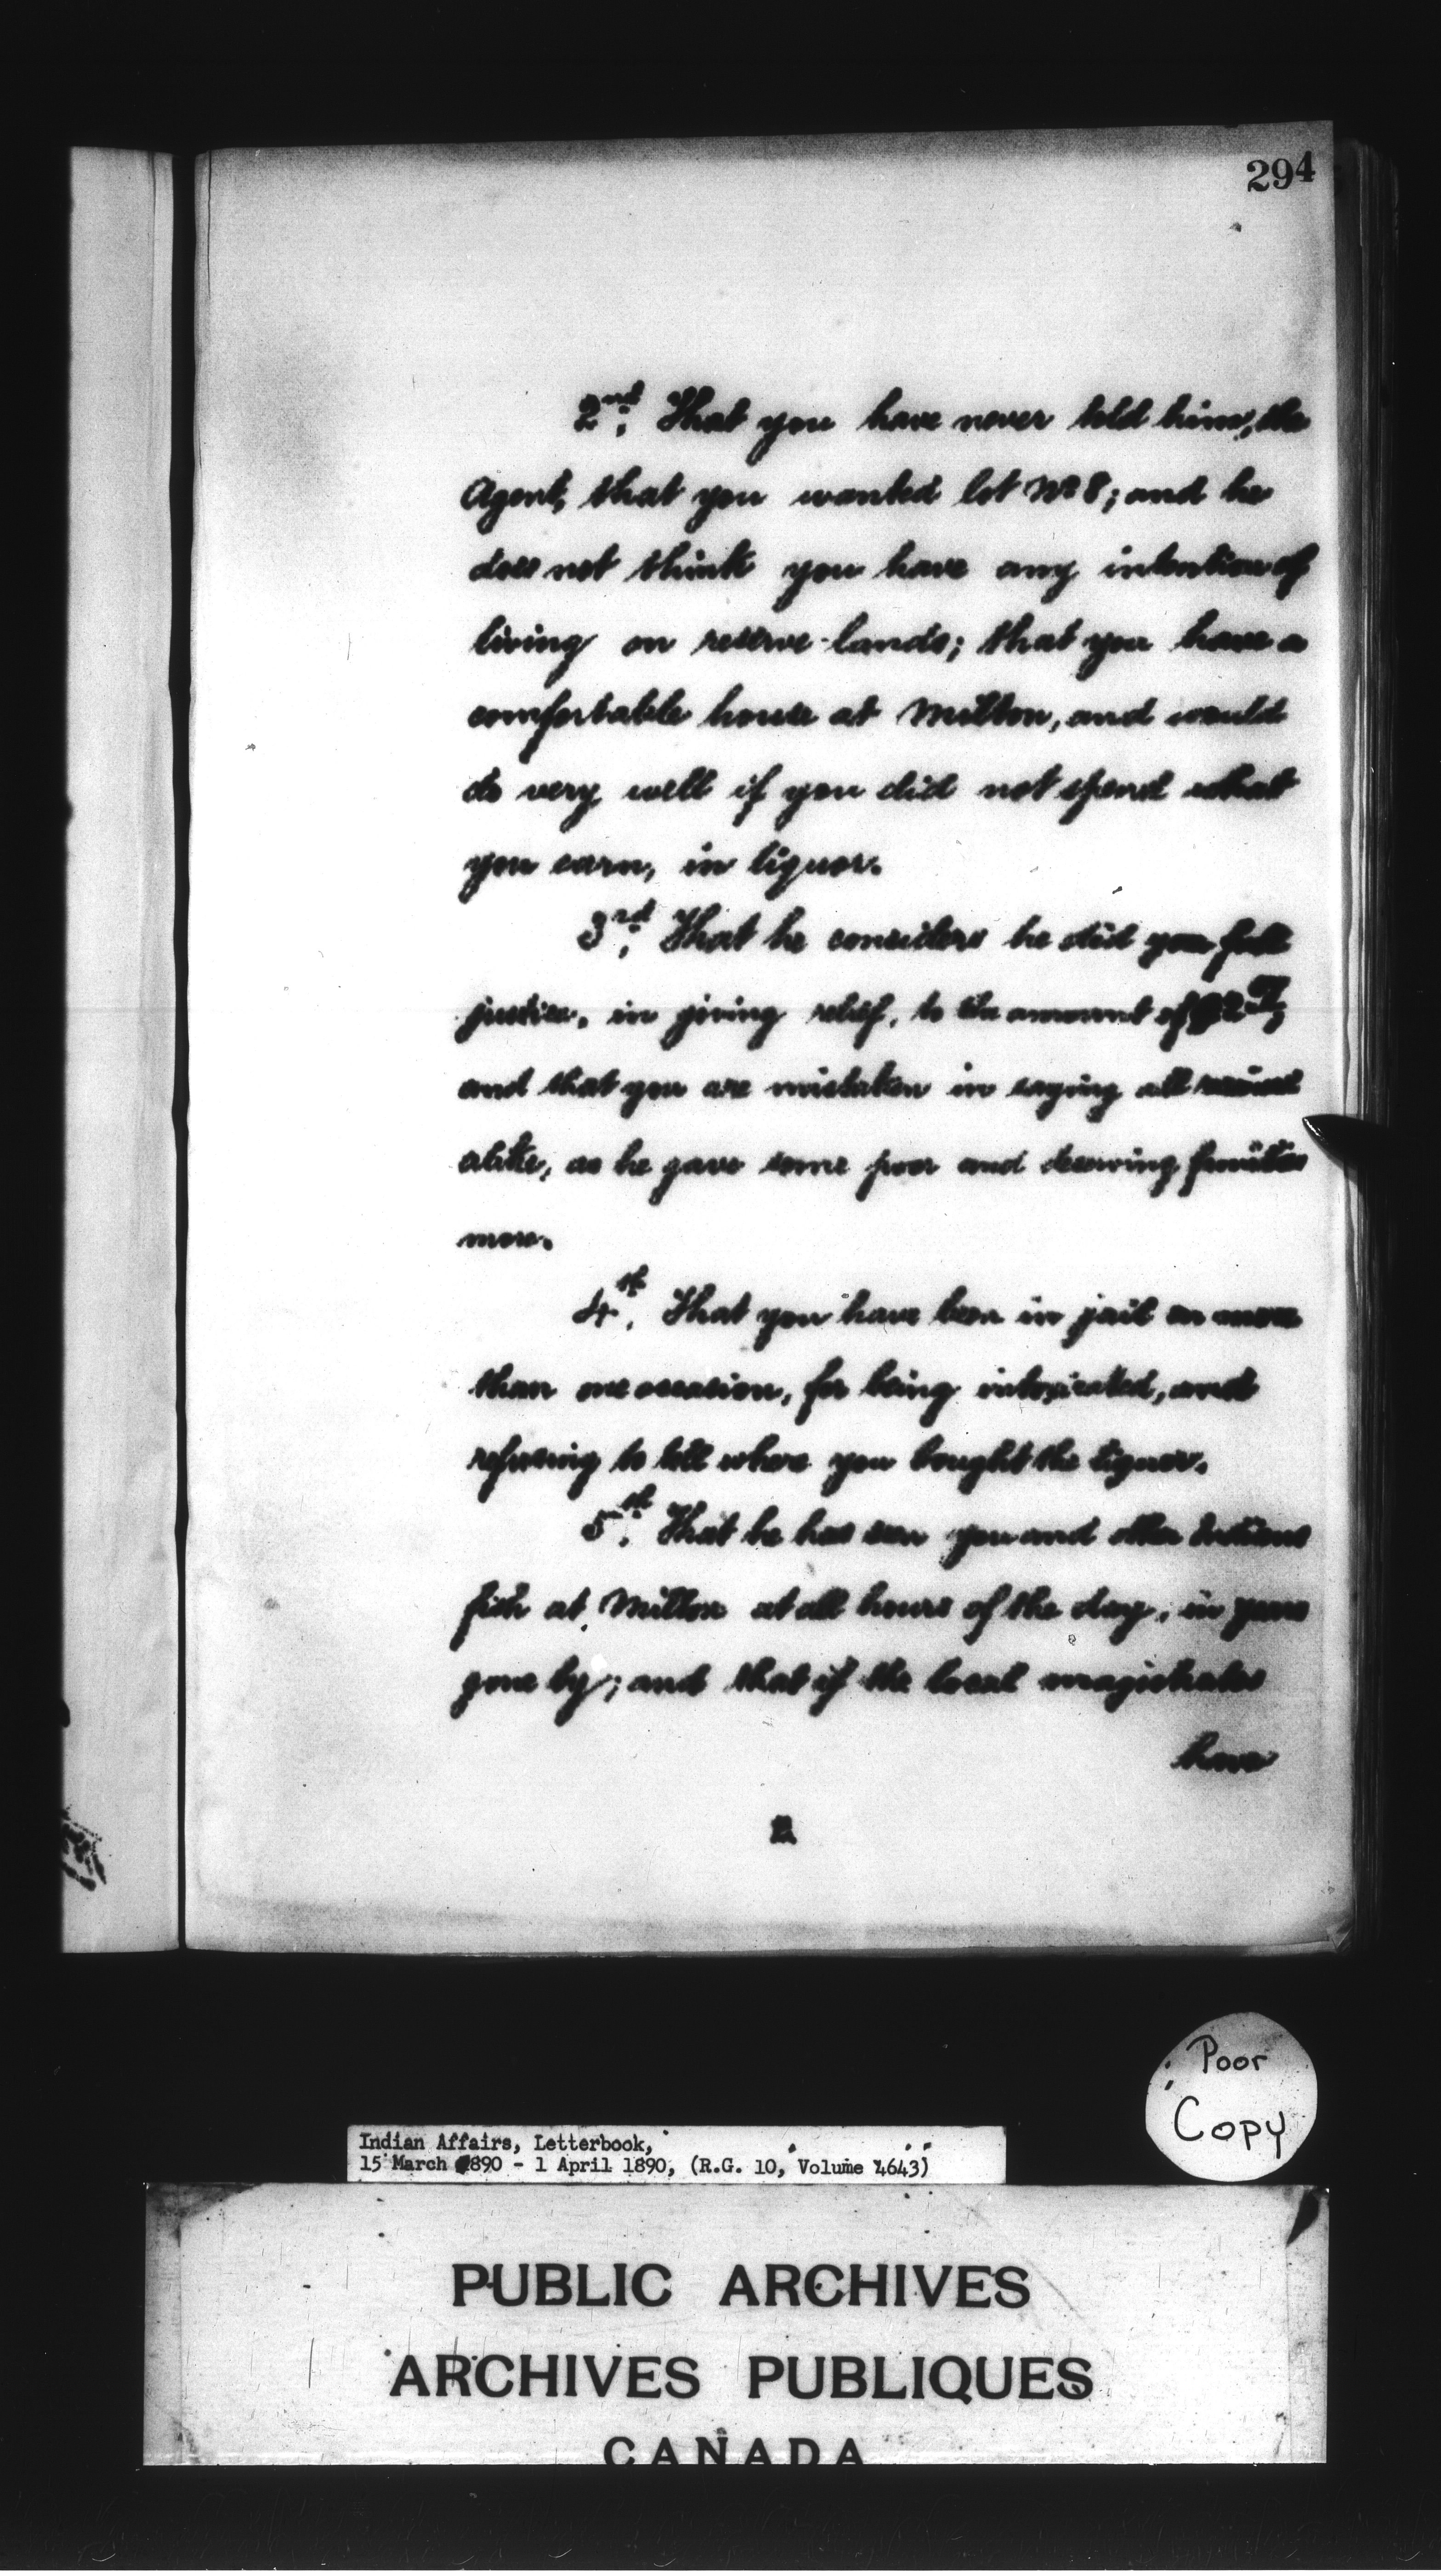 294
2nd. That you have never told him, the
Agent, that you wanted lot No 8; and he
does not think you have any intention of
living on reserve lands; that you have a
comfortable house at Milton, and would
do very well if you did not spend what
you earn, in liquor.
3rd. That he considers he did you full
justice, in giving relief, to the amount of
and that you are mistaken in saying all
alike, as he gave some poor and deserving families
more.
4th. That you have been in jail on more
than one occasion, for being intoxicated, and
refusing to tell where you bought the liquor.
5th. That he has seen you and other Indians
fish at Milton at all hours of the day, in years
gone by; and that if the local magistrates
have
Poor
Copy
Indian Affairs, Letterbook,
15 March 1890 - 1 April 1890, (R.G. 10, Volume 4643)
PUBLIC ARCHIVES
ARCHIVES PUBLIQUES
CANADA